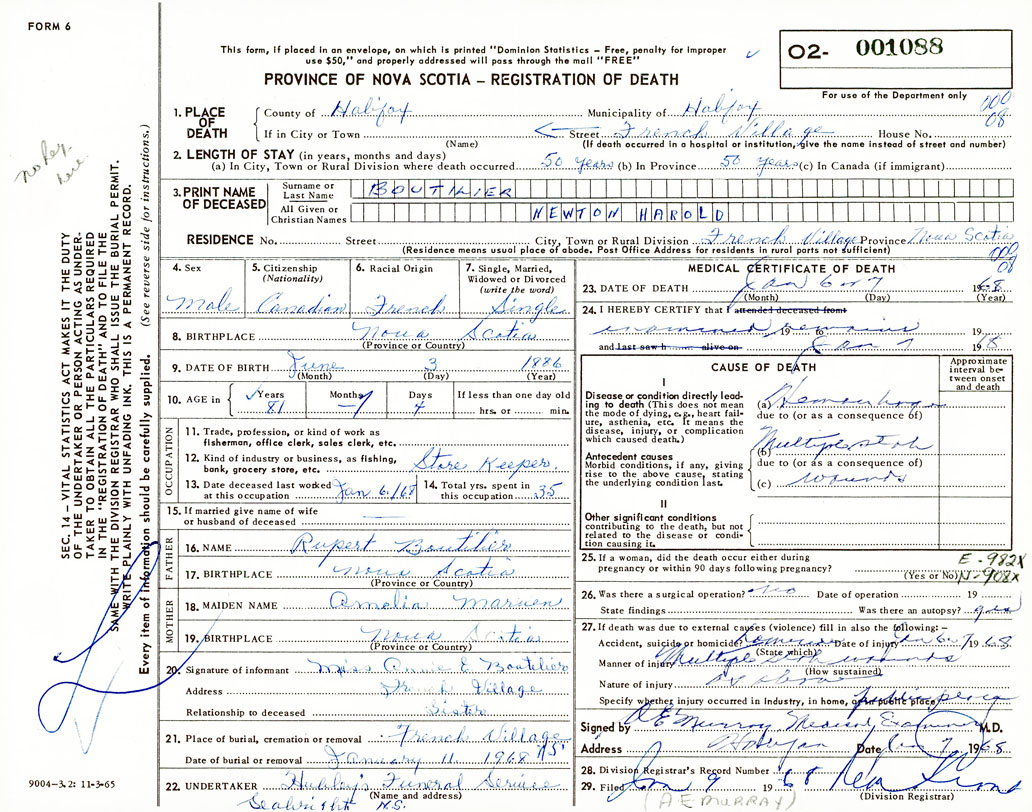 FORM 6
This form, if placed in an envelope, on which is printed "Dominion Statistics – Free, penalty for improper
use $50," and properly addressed will pass through the mail "FREE"
O2- 001088
PROVINCE OF NOVA SCOTIA – REGISTRATION OF DEATH
For use of the Department only
000
08
1. PLACE OF DEATH
County of Halifax Municipality of Halifax
If in City or Town Street French Village House No.
(Name) (If death occurred in a hospital or institution, give the name instead of street and number)
2. LENGTH OF STAY (in years, months and days)
(a) In City, Town or Rural Division where death occurred 50 years (b) In Province 50 years (c) In Canada (if immigrant)
3. PRINT NAME OF DECEASED
Surname or Last Name BOUTILIER
All Given or Christian Names NEWTON HAROLD
RESIDENCE No. Street City, Town or Rural Division French Village Province Nova Scotia
(Residence means usual place of abode. Post Office Address for residents in rural parts not sufficient)
000
08
4. Sex
Male
5. Citizenship (Nationality)
Canadian
6. Racial Origin
French
7. Single, Married, Widowed or Divorced (write the word)
Single
8. BIRTHPLACE Nova Scotia
(Province or Country)
9. DATE OF BIRTH June 3 1886
(Month) (Day) (Year)
10. AGE in Years 81 Months 7 Days 4 If less than one day old hrs. or min.
OCCUPATION
11. Trade, profession or kind of work as
fisherman, office clerk, sales clerk, etc.
12. Kind of industry or business, as fishing,
bank, grocery store, etc. Store Keeper.
13. Date deceased last worked at this occupation Jan 6/68
14. Total yrs. spent in this occupation 35
15. If married give name of wife
or husband of deceased
FATHER
16. NAME Rupert Boutilier
17. BIRTHPLACE Nova Scotia
(Province or Country)
MOTHER
18. MAIDEN NAME Amelia
19. BIRTHPLACE Nova Scotia
(Province or Country)
20. Signature of informant Miss Annie E. Boutilier
Address French Village
Relationship to deceased Sister
21. Place of burial, cremation or removal French Village N.S.
Date of burial or removal January 11 1968
22. UNDERTAKER Hubley's Funeral Service
(Name and address)
Seabright N.S.
MEDICAL CERTIFICATE OF DEATH
23. DATE OF DEATH Jan 6 or 7 1968
(Month) (Day) (Year)
24. I HEREBY CERTIFY that I attended deceased from
examined remains 19 to 19
and last saw h alive on Jan 7 1968
CAUSE OF DEATH
Approximate interval between onset and death
I
Disease or condition directly leading to death (This does not mean the mode of dying, e.g., heart failure, asthenia, etc. It means the disease, injury, or complication which caused death.)
(a) Hemorrhage
due to (or as a consequence of)
Antecedent causes
Morbid conditions, if any, giving rise to the above cause, stating the underlying condition last.
(b) Multiple stab
due to (or as a consequence of)
(c) wounds
II
Other significant conditions
contributing to the death, but not related to the disease or condition causing it.
25. If a woman, did the death occur either during
pregnancy or within 90 days following pregnancy?
(Yes or No)
E-982X
N-908X
26. Was there a surgical operation? No Date of operation 19
State findings Was there an autopsy? yes
27. If death was due to external causes (violence) fill in also the following: –
Accident, suicide or homicide? homicide Date of injury Jan 6-7 1968
(State which)
Manner of injury Multiple stab wounds
(How sustained)
Nature of injury as above
Specify whether injury occurred in industry, in home, or in public place public place
Signed by A E Murray Medical Examiner M.D.
Address Halifax Date Jan 7 1968
28. Division Registrar's Record Number
29. Filed Jan 9 1968
(Division Registrar)
(A E MURRAY)
no Rep.
SEC. 14 – VITAL STATISTICS ACT MAKES IT THE DUTY
OF THE UNDERTAKER OR PERSON ACTING AS UNDER-
TAKER TO OBTAIN ALL THE PARTICULARS REQUIRED
IN THE "REGISTRATION OF DEATH" AND TO FILE THE
SAME WITH THE DIVISION REGISTRAR WHO SHALL ISSUE THE BURIAL PERMIT.
WRITE PLAINLY WITH UNFADING INK. THIS IS A PERMANENT RECORD.
Every item of information should be carefully supplied. (See reverse side for instructions.)
9004–3.2: 11-3-65